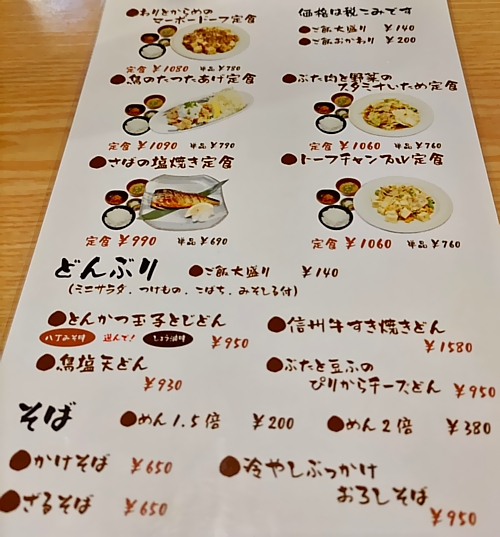 ●わりとからめの
マーボードーフ定食
定食 ¥1080 単品 ¥780
価格は税こみです
●ご飯大盛り ¥140
●ご飯おかわり ¥200
●鳥のたつたあげ定食
定食 ¥1090 単品 ¥790
●ぶた肉と野菜の
スタミナいため定食
定食 ¥1060 単品 ¥760
●さばの塩焼き定食
定食 ¥990 単品 ¥690
●トーフチャンプル定食
定食 ¥1060 単品 ¥760
どんぶり ●ご飯大盛り ¥140
(ミニサラダ、つけもの、こばち、みそしる付)
●とんかつ玉子とじどん
八丁みそ味 選んで! しょう油味 ¥950
●信州牛すき焼きどん
¥1580
●鳥塩天どん
¥930
●ぶたと豆ふの
ぴりからチーズどん ¥950
そば ●めん1.5倍 ¥200 ●めん2倍 ¥380
●かけそば ¥650
●冷やしぶっかけ
おろしそば
¥950
●ざるそば ¥650